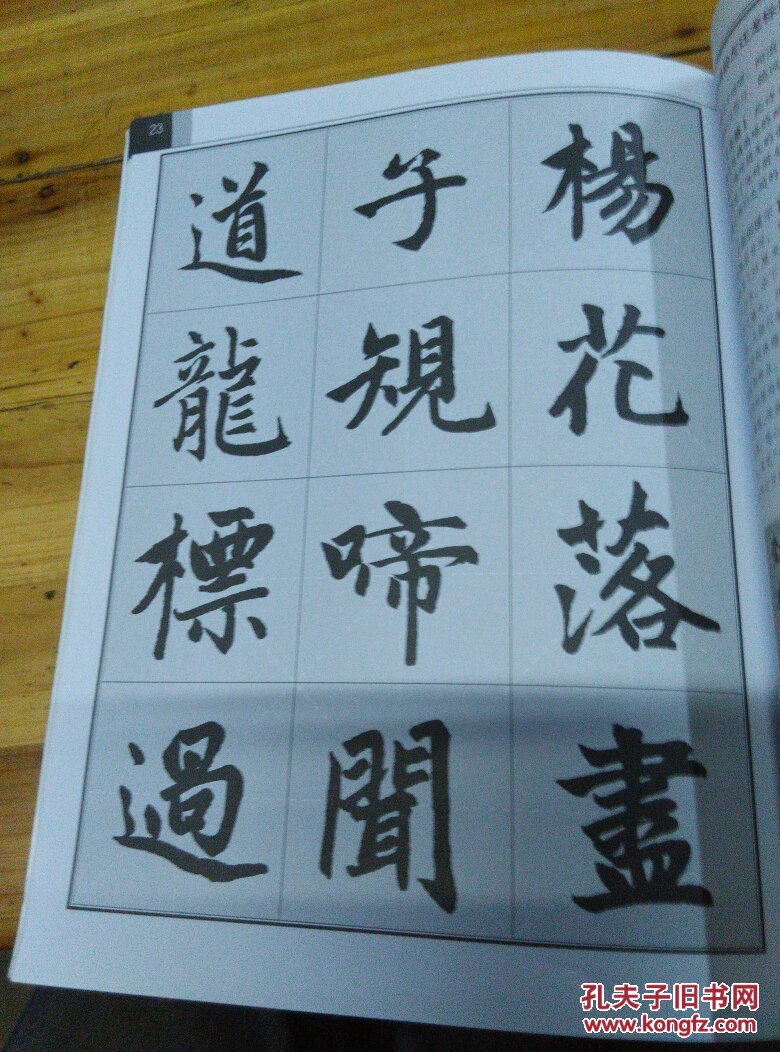 楊花落盡
子規啼聞
道龍標過
23
孔夫子旧书网
www.kongfz.com